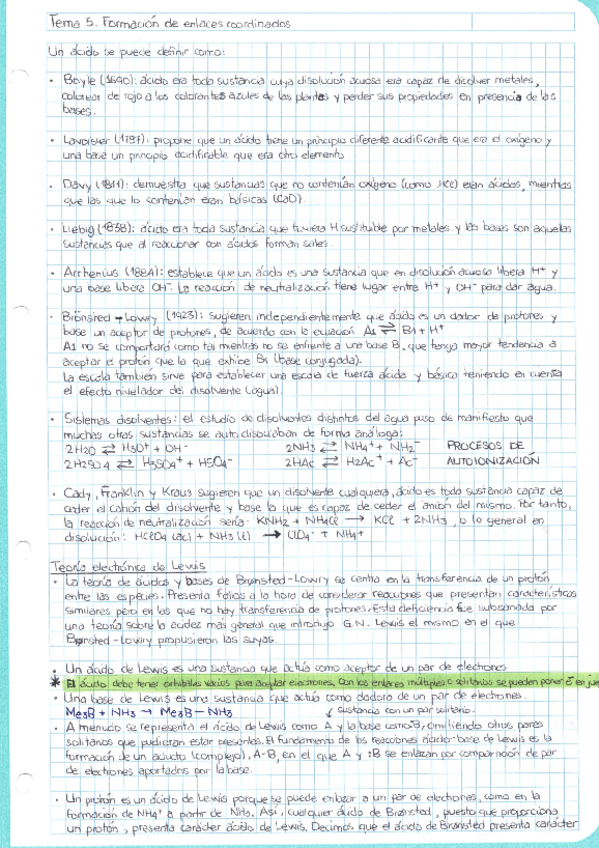 Tema 5. Formación de enlaces coordinados
Un ácido se puede definir como:
· Boyle (1640): ácido era toda sustancia cuya disolución acuosa era capaz de disolver metales,
colorear de rojo a los colorantes azules de las plantas y perder sus propiedades en presencia de las
bases.
· Lavoisier (1787): propone que un ácido tiene un principio diferente acidificante que era el oxígeno y
una base un principio acidificable que era otro elemento
· Davy (1811): demuestra que sustancias que no contenían oxígeno (como HCl) eran ácidos, mientras
que las que lo contenían eran básicas (CaO).
· Liebig (1838): ácido era toda sustancia que tuviera H sustituible por metales y las bases son aquellas
sustancias que al reaccionar con ácidos forman sales.
· Arrhenius (1884): establece que un ácido es una sustancia que en disolución acuosa libera H+ y
una base libera OH-. La reacción de neutralización tiene lugar entre H+ y OH- para dar agua.
· Brönsted - Lowry (1923): sugieren independientemente que ácido es un dador de protones y
base un aceptor de protones, de acuerdo con la ecuación A1 ⇌ B1 + H+
A1 no se comportará como tal mientras no se enfrente a una base B, que tenga mayor tendencia a
aceptar el protón que la que exhibe B1 (base conjugada).
La escala también sirve para establecer una escala de fuerza ácida y básica teniendo en cuenta
el efecto nivelador del disolvente (agua).
· Sistemas disolventes: el estudio de disolventes distintos del agua puso de manifiesto que
muchas otras sustancias se auto disociaban de forma análoga:
2H2O ⇌ H3O+ + OH- 2NH3 ⇌ NH4+ + NH2- PROCESOS DE
2H2SO4 ⇌ H3SO4+ + HSO4- 2HAc ⇌ H2Ac+ + Ac- AUTOIONIZACIÓN
· Cady, Franklin y Kraus sugieren que un disolvente cualquiera, ácido es toda sustancia capaz de
ceder el catión del disolvente y base la que es capaz de ceder el anión del mismo. Por tanto,
la reacción de neutralización sería: KNH2 + NH4Cl → KCl + 2NH3, o lo general en
disolución: HClO4 (ac) + NH3 (l) → ClO4- + NH4+
Teoría electrónica de Lewis
· La teoría de ácidos y bases de Brønsted-Lowry se centra en la transferencia de un protón
entre las especies. Presenta fallos a la hora de considerar reacciones que presentan características
similares pero en las que no hay transferencia de protones. Esta deficiencia fue subsanada por
una teoría sobre la acidez más general que introdujo G.N. Lewis el mismo en el que
Brønsted-Lowry propusieron las suyas.
· Un ácido de Lewis es una sustancia que actúa como aceptor de un par de electrones
* El ácido debe tener orbitales vacíos para aceptar electrones. Con los enlaces múltiples o solitarios se pueden poner
· Una base de Lewis es una sustancia que actúa como dadora de un par de electrones.
Me3B + NH3 → Me3B - NH3 ↙ Sustancia con un par solitario.
· A menudo se representa el ácido de Lewis como A y la base como :B, omitiendo otros pares
solitarios que pudieran estar presentes. El fundamento de las reacciones ácido-base de Lewis es la
formación de un aducto (complejo), A-B, en el que A y :B se enlazan por compartición de par
de electrones aportados por la base.
· Un protón es un ácido de Lewis porque se puede enlazar a un par de electrones, como en la
formación de NH4+ a partir de NH3. Así, cualquier ácido de Brønsted, puesto que proporciona
un protón, presenta carácter ácido de Lewis. Decimos que el ácido de Brønsted presenta carácter